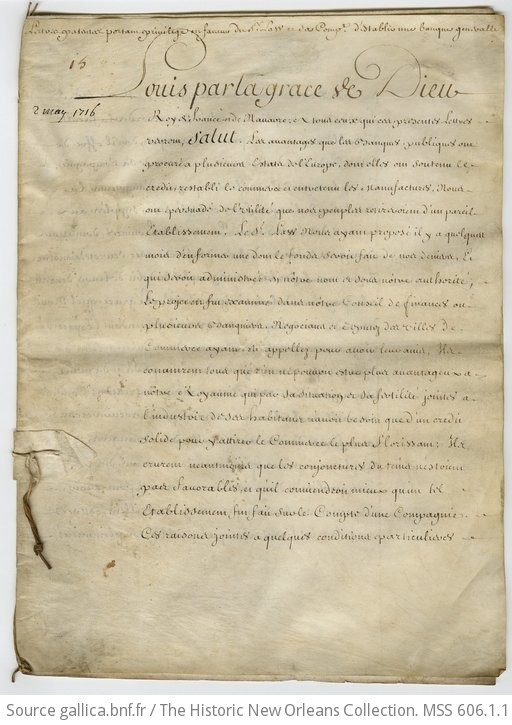 Lettres patentes portant privilege en faveur du Sr. Law et sa Compe. d'établir une banque generalle
15
Louis par la grace de Dieu
2 may 1716
Roy de france et de Navarre, A tous ceux qui ces presentes Lettres
verront, Salut. Les avantages que les Banques publiques ont
procuré a plusieurs Estats de l'Europe, dont elles ont soutenu le
credit, restabli le commerce et entretenu les Manufactures, Nous
ont persuadé de l'Utilité que nos peuples retireroient d'un pareil
Etablissement. Le Sr. Law Nous ayant proposé il y a quelques
mois d'en former une dont le fonds seroit fait de nos deniers, Et
qui seroit administrée en nôtre nom et sous nôtre authorité;
Le projet en fut examiné dans nôtre Conseil de finances ou
plusieurs Banquiers, Negocians et Deputez des Villes de
Commerce ayant été appellez pour avoir leur avis, Ils
convinrent tous que rien ne pouvoit estre plus avantageux a
nôtre Royaume qui par sa situation et sa fertilité jointes a
l'industrie de ses habitans n'avoit besoin que d'un credit
solide pour y attirer le Commerce le plus florissant; Ils
crurent neantmoins que les conjonctures du tems n'estoient
pas favorables, et qu'il conviendroit mieux qu'un tel
Etablissement fut fait sur le Compte d'une Compagnie.
Ces raisons jointes a quelques conditions particulieres
Source gallica.bnf.fr / The Historic New Orleans Collection. MSS 606.1.1